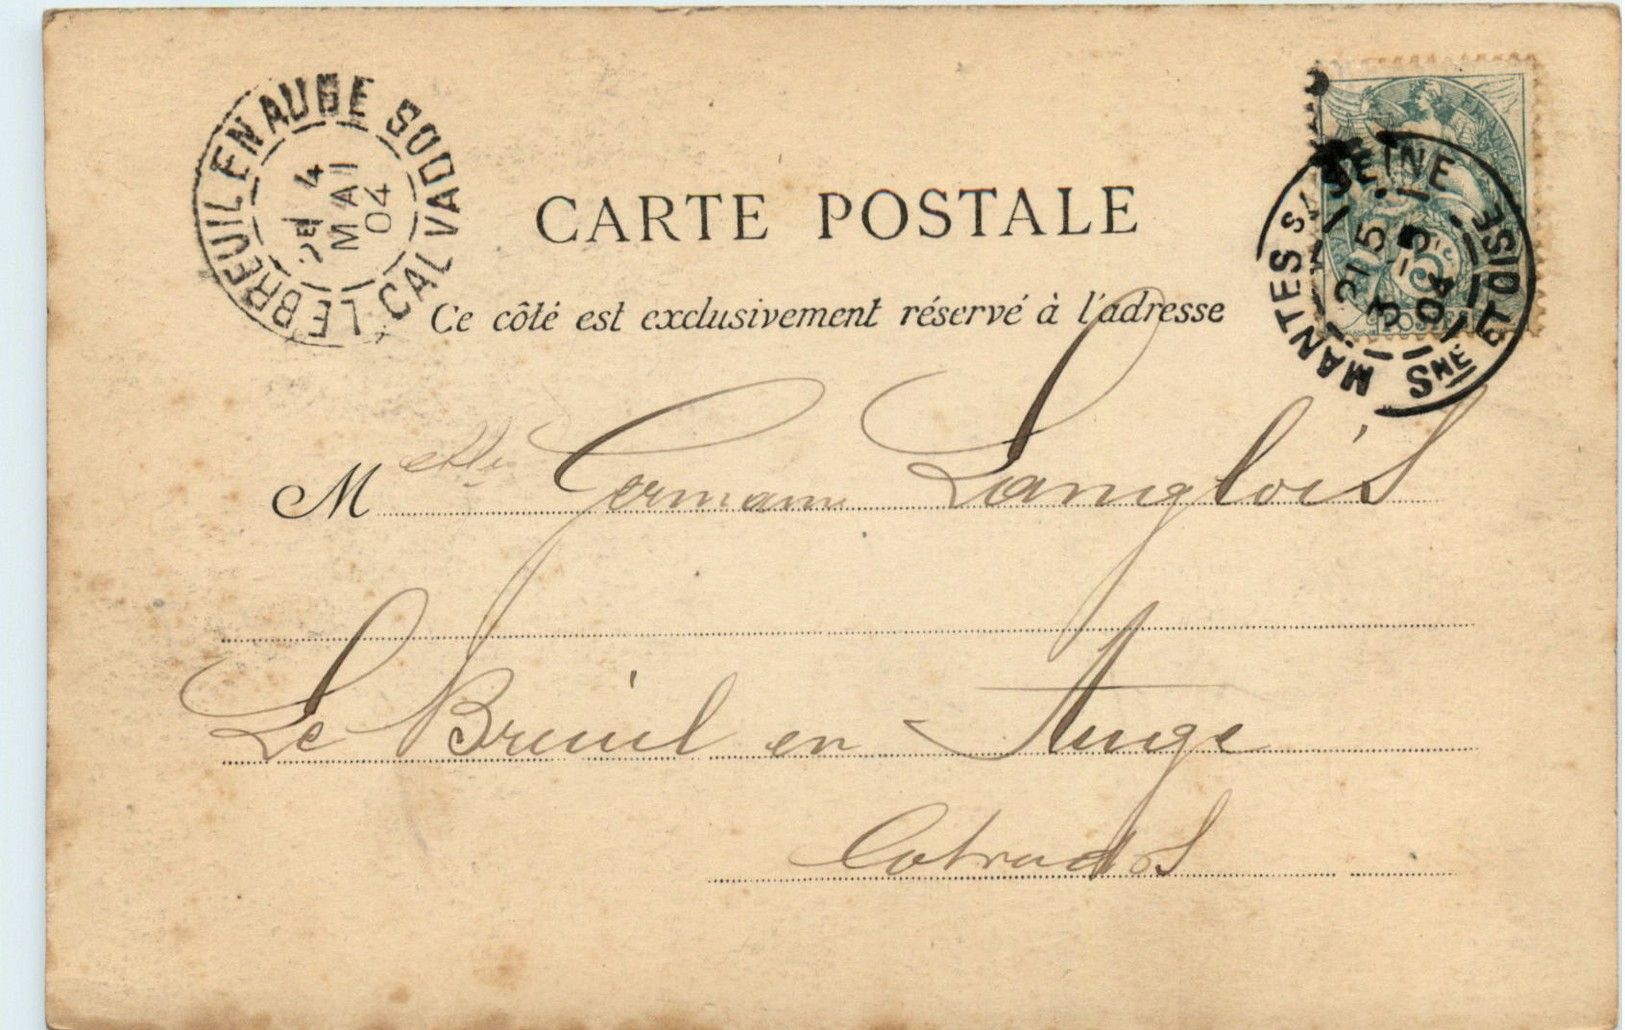 LE BREUIL EN AUGE CALVADOS
2E / 4
MAI
04
CARTE POSTALE
Ce côté est exclusivement réservé à l'adresse
MANTES S/ SEINE SNE ET OISE
2E 15
3 -5
04
5c
POSTES
M elle Germaine Langlois
Le Breuil en Auge
Calvados